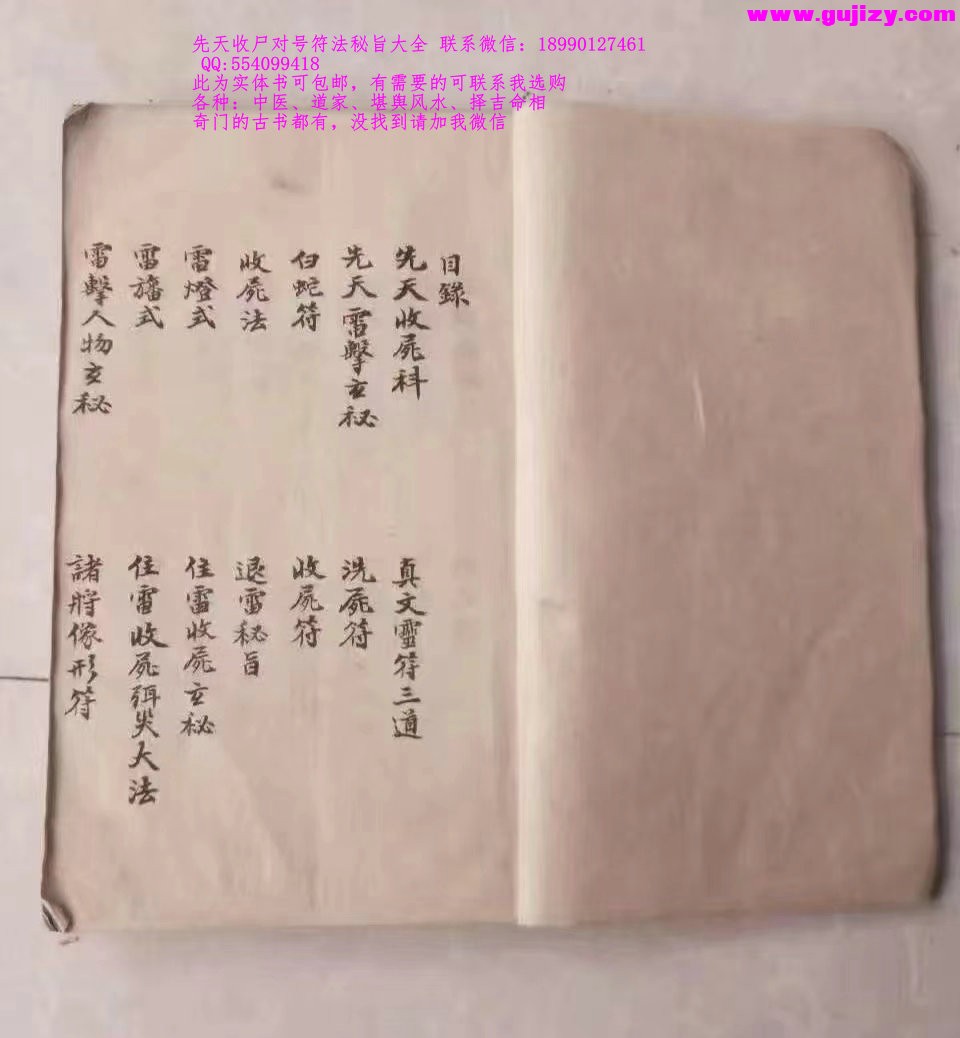 www.gujizy.com
先天收尸对号符法秘旨大全 联系微信：18990127461
QQ:554099418
此为实体书可包邮，有需要的可联系我选购
各种：中医、道家、堪舆风水、择吉命相
奇门的古书都有，没找到请加我微信
目錄
先天收屍科 真文靈符三道
先天雷擊玄秘 洗屍符
白蛇符 收屍符
收屍法 退雷秘旨
雷燈式 住雷收屍玄秘
雷旛式 住雷收屍弭災大法
雷擊人物玄秘 諸將像形符